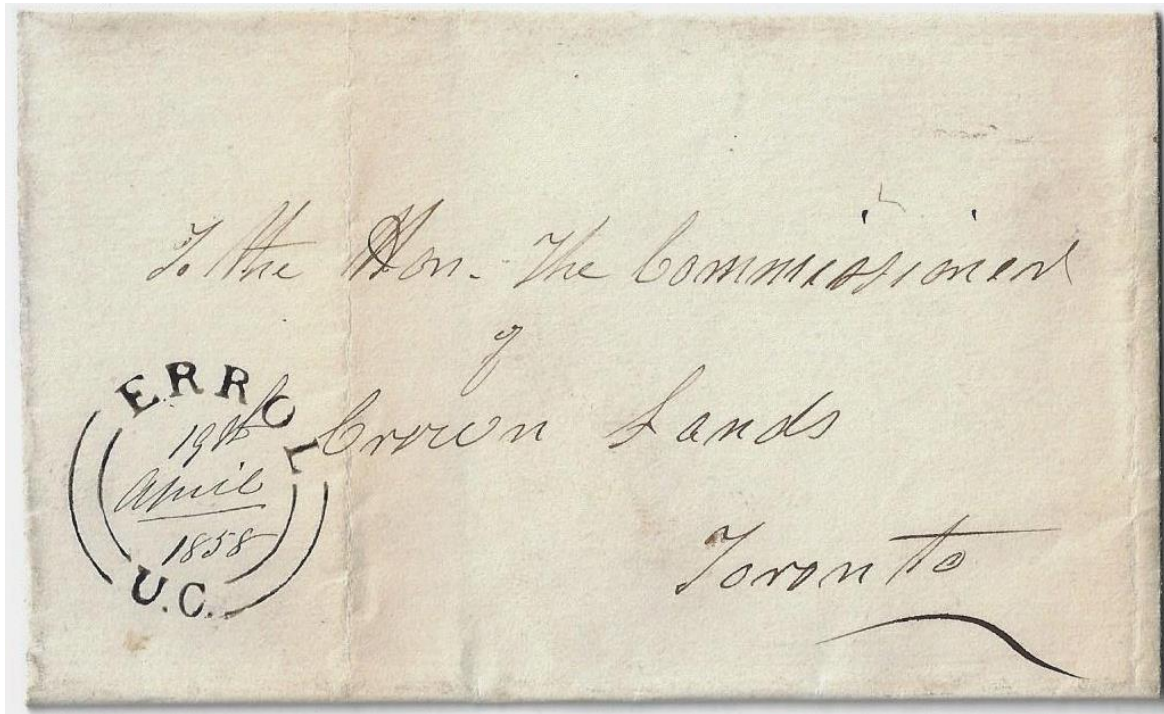 To the Hon. The Commissioner
of
Crown Lands
Toronto
ERROL
19th
April
1858
U.C.